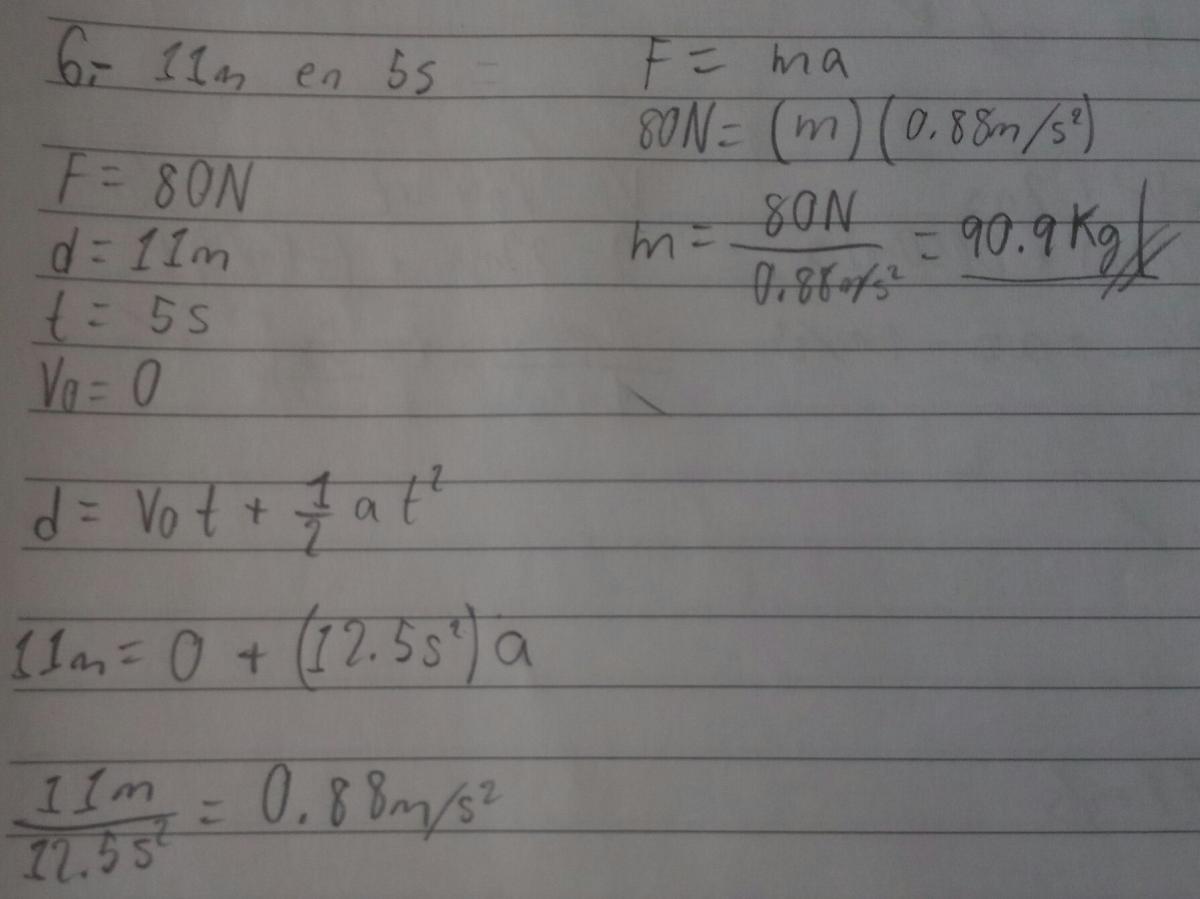 6.- 11m en 5s =
F = 80N
d = 11m
t = 5s
V0 = 0
d = V0 t + 1/2 a t²
11m = 0 + (12.5s²) a
11m / 12.5s² = 0.88m/s²
F = ma
80N = (m) (0.88m/s²)
m = 80N / 0.88m/s² = 90.9 Kg